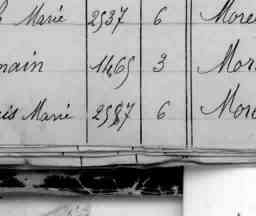 Marié 2537 6 More
main 1465 3 Mor
is Marié 2587 6 More